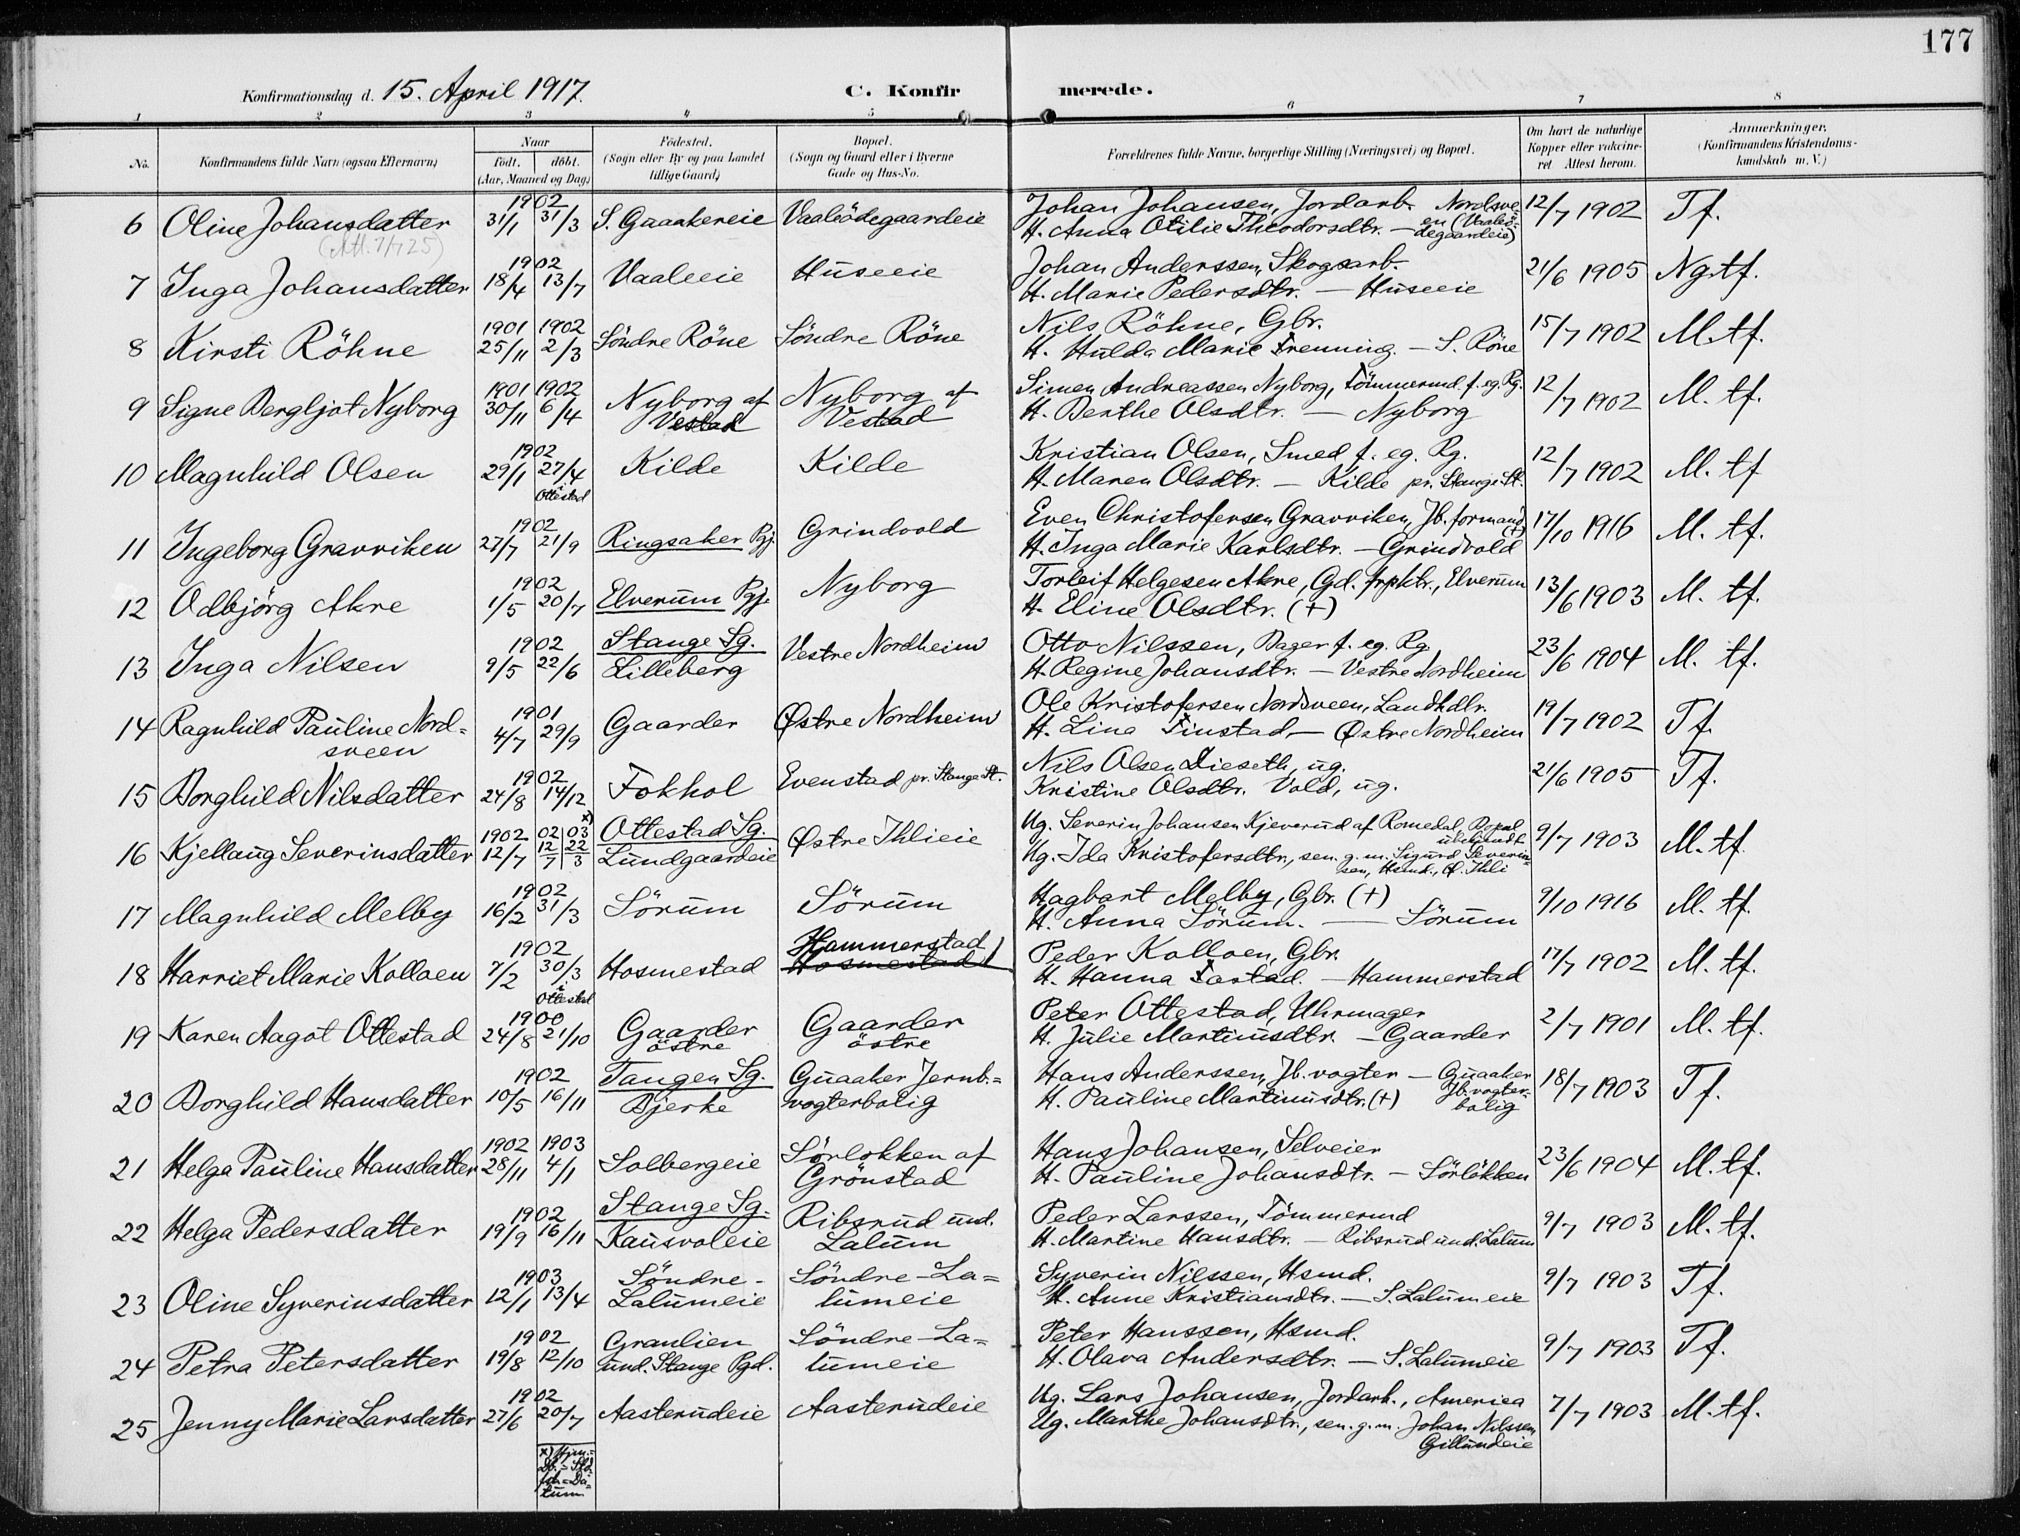 177
Konfirmationsdag d. 15. April 1917. C. Konfirmerede.
1 2 3 4 5 6 7 8
No. Konfirmandens fulde Navn (ogsaa Efternavn) Naar født. døbt. (Aar, Maaned og Dag.) Födested. (Sogn eller By og paa Landet tillige Gaard.) Bopæl. (Sogn og Gaard eller i Byerne Gade og Hus-No. Forældrenes fulde Navne, borgerlige Stilling (Næringsvei) og Bopæl. Om havt de naturlige Kopper eller vakcineret Attest herom. Anmerkninger. (Konfirmandens Kristendomskundskab m. V.)
6 Oline Johansdatter 1902 31/1 31/3 S. Guaakereie Vaaleödegaardeie Johan Johansen, Jordarb. Nordsveen (Vaaleödegaardeie)
H. Anna Otilie Theodorsdtr. 12/7 1902 Tf.
(Att. 7/7 25)
7 Inga Johansdatter 1902 18/4 13/7 Vaaleeie Huseeie Johan Anderssen, Skogsarb.
H. Marie Pedersdtr. — Huseeie 21/6 1905 Ng. tf.
8 Kirsti Röhne 1901 25/11 1902 2/3 Söndre Röne Söndre Röne Nils Röhne, Gbr.
H. Hulda Marie Frenning. — S. Röne 15/7 1902 M. tf.
9 Signe Bergljot Nyborg 1901 30/11 1902 6/4 Nyborg af Vestad Nyborg af Vestad Simen Andreassen Nyborg, Tömmermd. f. eg. Rg.
H. Berthe Olsdtr. — Nyborg 12/7 1902 M. tf.
10 Magnhild Olsen 1902 29/1 27/4 i Ottestad Kilde Kilde Kristian Olsen, Smed f. eg. Rg.
H. Maren Olsdtr. — Kilde pr. Stange St. 12/7 1902 M. tf
11 Ingeborg Gravviken 1902 27/7 21/9 Ringsaker Pgj. Grindvold Even Christofersen Gravviken, Jb. formand (+)
H. Inga Marie Karlsdtr. — Grindvold 17/10 1916 M. tf.
12 Odbjörg Akre 1902 1/5 20/7 Elverum Pgj. Nyborg Torleif Helgesen Akre, Gd. frpktr., Elverum
H. Eline Olsdtr. (+) 13/6 1903 M. tf.
13 Inga Nilsen 1902 9/5 22/6 Stange Sg. Lilleberg Vestre Nordheim Otto Nilssen, Bager f. eg. Rg.
H. Regine Johansdtr. — Vestre Nordheim 23/6 1904 M. tf.
14 Ragnhild Pauline Nordsveen 1901 4/7 29/9 Gaarder Østre Nordheim Ole Kristofersen Nordsveen, Landhdlr.
H. Lina Finstad, — Østre Nordheim 19/7 1902 Tf.
15 Borghild Nilsdatter 1902 24/8 14/12 Fokhol Evenstad pr. Stange St. Nils Olsen Dieseth, ug.
Kristine Olsdtr. Vold, ug. 21/6 1905 Tf.
16 Kjellaug Severinsdatter 1902 12/7 02 12/7 03 22/3 x) Ottestad Sg. Lundgaardeie Østre Ihlieie Ug. Severin Johansen Kjeverud af Romedal, Bopæl ubekjendt
Ug. Ida Kristofersdtr., sen. g. m. Sigurd Severinsen, Hsmd., Ø. Ihli 9/7 1903 M. tf
17 Magnhild Melby 1902 16/2 31/3 Sörum Sörum Hagbart Melby, Gbr. (+)
H. Anna Sörum. — Sörum 9/10 1916 M. tf.
18 Harriet Marie Kolloen 1902 7/2 30/3 i Ottestad Hosmestad Hammerstad Hosmestad Peder Kolloen, Gbr.
H. Hanna Tastad. — Hammerstad 17/7 1902 M. tf.
19 Karen Aagot Ottestad 1900 24/8 21/10 Gaarder östre Gaarder östre Peter Ottestad, Uhrmager
H. Julie Martinusdtr. — Gaarder 2/7 1901 M. tf.
20 Borghild Hansdatter 1902 10/5 16/11 Tangen Sg. Bjerke Guaaker Jernb.vogterbolig Hans Anderssen, Jb. vogter — Guaaker Jb. vogterbolig
H. Pauline Martinusdtr. (+) 18/7 1903 Tf.
21 Helga Pauline Hansdatter 1902 28/11 1903 4/1 Solbergeie Sörlokken af Grönstad Hans Johansen, Selveier
H. Pauline Johansdtr. — Sörlökken 23/6 1904 M. tf.
22 Helga Pedersdatter 1902 19/9 16/11 Stange Sg. Kausvoleie Ribsrud und. Lalum Peder Larssen, Tömmermd
H. Martine Hansdtr. — Ribsrud und. Lalum 9/7 1903 M. tf.
23 Oline Syverinsdatter 1903 12/1 13/4 Söndre-Lalumeie Söndre-Lalumeie Syverin Nilssen, Hsmd.
H. Anne Kristiansdtr. — S. Lalumeie 9/7 1903 Tf.
24 Petra Petersdatter 1902 19/8 12/10 Granlien und. Stange Pgd. Söndre-Lalumeie Peter Hanssen, Hsmd.
H. Olava Andersdtr. — S. Lalumeie 9/7 1903 Tf.
25 Jenny Marie Larsdatter 1902 27/6 20/7 Aasterudeie Aasterudeie Ug. Lars Johansen, Jordarb., America
Ug. Marthe Johansdtr., sen. g. m. Johan Nilssen, Gillundeie 7/7 1903 M. tf.